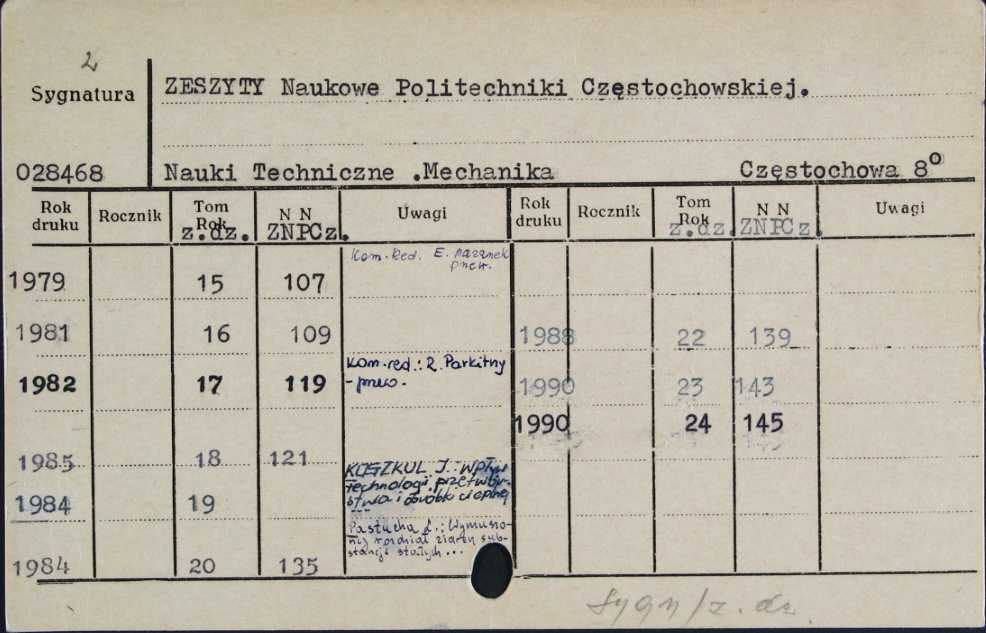 2
Sygnatura
ZESZYTY Naukowe Politechniki Częstochowskiej.
028468
Nauki Techniczne .Mechanika Częstochowa 8°
Rok druku Rocznik Tom Rok z.dz. N N ZNPCz. Uwagi Rok druku Rocznik Tom Rok z.dz. N N ZNPCz. Uwagi
Kom.Red. E.
1979 15 107
1981 16 109 1988 22 139
Kom.red.: R. Parkitny
1982 17 119 1990 23 143
1990 24 145
1985 18 121
KOSZKUL J.: Wpływ
technologi przetwór-
stwa i obróbki cieplnej
1984 19
Pastucha L.: Wymuszo-
ny rozdział ziaren sub-
stancji stałych...
1984 20 135
Sygn/z. dz